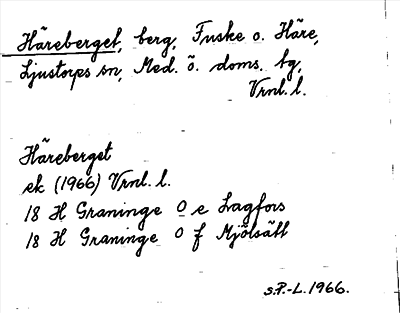 Häreberget, berg, Fuske o. Häre,
Ljustorps sn, Med. ö. doms. tg,
Vrnl. l.
Häreberget
ek (1966) Vrnl. l.
18 H Graninge O e Lagfors
18 H Graninge O f Mjölsätt
s.P.-L. 1966.